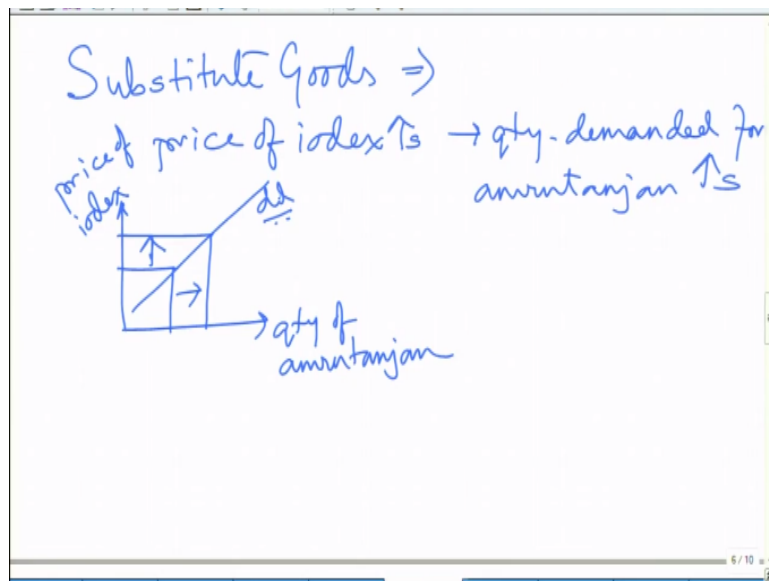 Substitute Goods ⇒
price of iodex ↑s → qty. demanded for
amrutanjan ↑s
price of
iodex
dd
qty of
amrutanjan
6 / 10